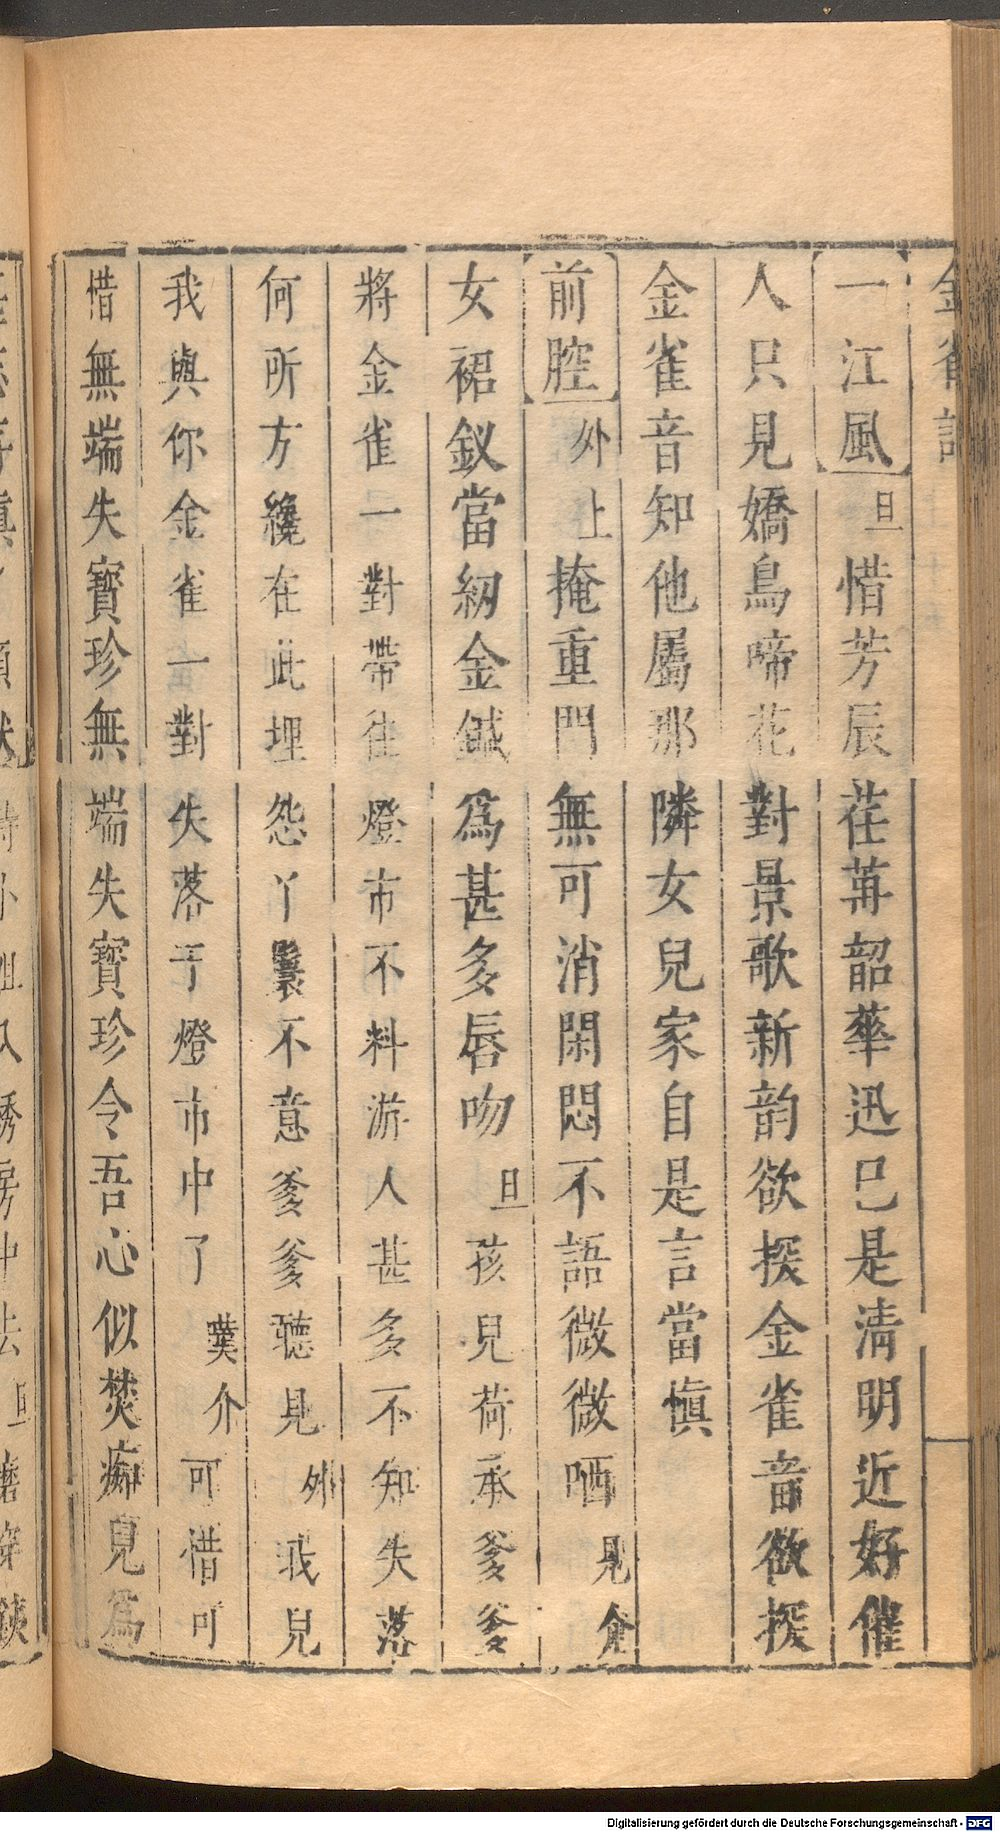 金雀記
一江風 旦 惜芳辰荏苒韶華迅已是清明近好催
人只見嬌鳥啼花對景歌新韵欲探金雀音欲探
金雀音知他屬那隣女兒家自是言當愼
前腔 外上 掩重門無可消閑悶不語微微哂 見介
女裙釵當紉金鍼為甚多唇吻 旦 孩兒荷承爹爹
將金雀一對帶往燈市不料游人甚多不知失落
何所方纔在此埋怨丫鬟不意爹爹聽見 外 我兒
我與你金雀一對失落于燈市中了 嘆介 可惜可
惜無端失寶珍無端失寶珍令吾心似焚痴兒為
Digitalisierung gefördert durch die Deutsche Forschungsgemeinschaft - DFG